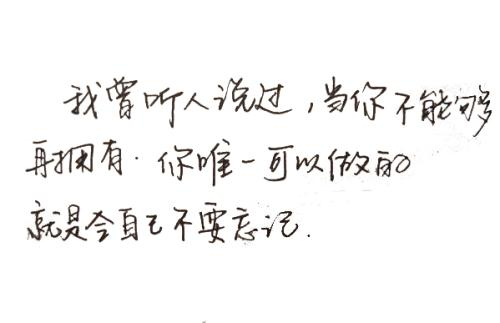 我曾听人说过,当你不能够
再拥有.你唯一可以做的
就是令自己不要忘记.